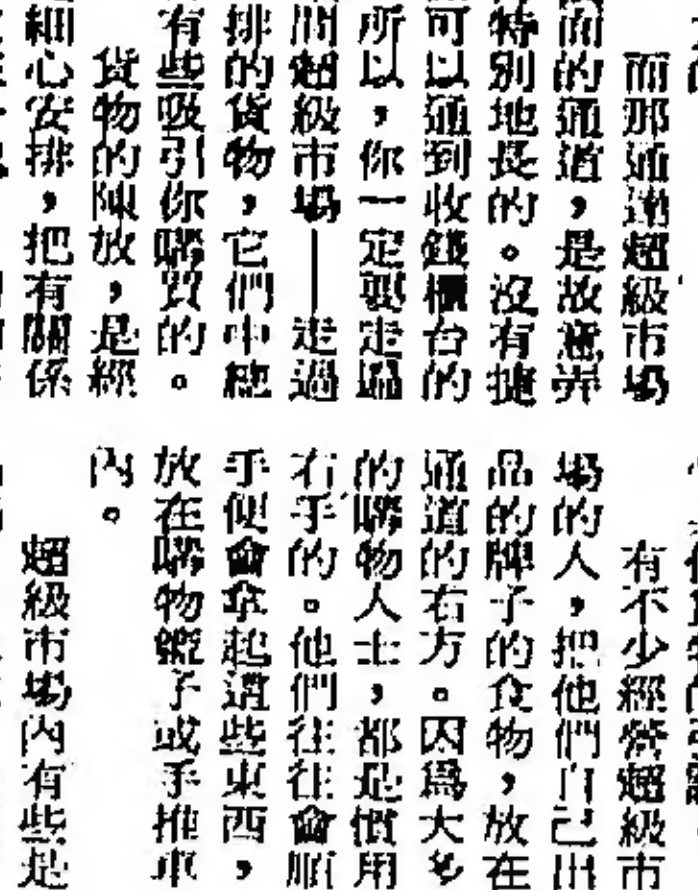 而那通達超級市場
面的通道，是故意弄
特別地長的。沒有捷
可以通到收錢櫃台的
所以，你一定要走過
間超級市場——走過
排的貨物，它們中總
有些吸引你購買的。
貨物的陳放，是經
細心安排，把有關係
有不少經營超級市
場的人，把他們自己出
品的牌子的食物，放在
通道的右方。因爲大多
的購物人士，都是慣用
右手的。他們往往會順
手便會拿起這些東西，
放在購物籃子或手推車
內。
超級市場內有些是